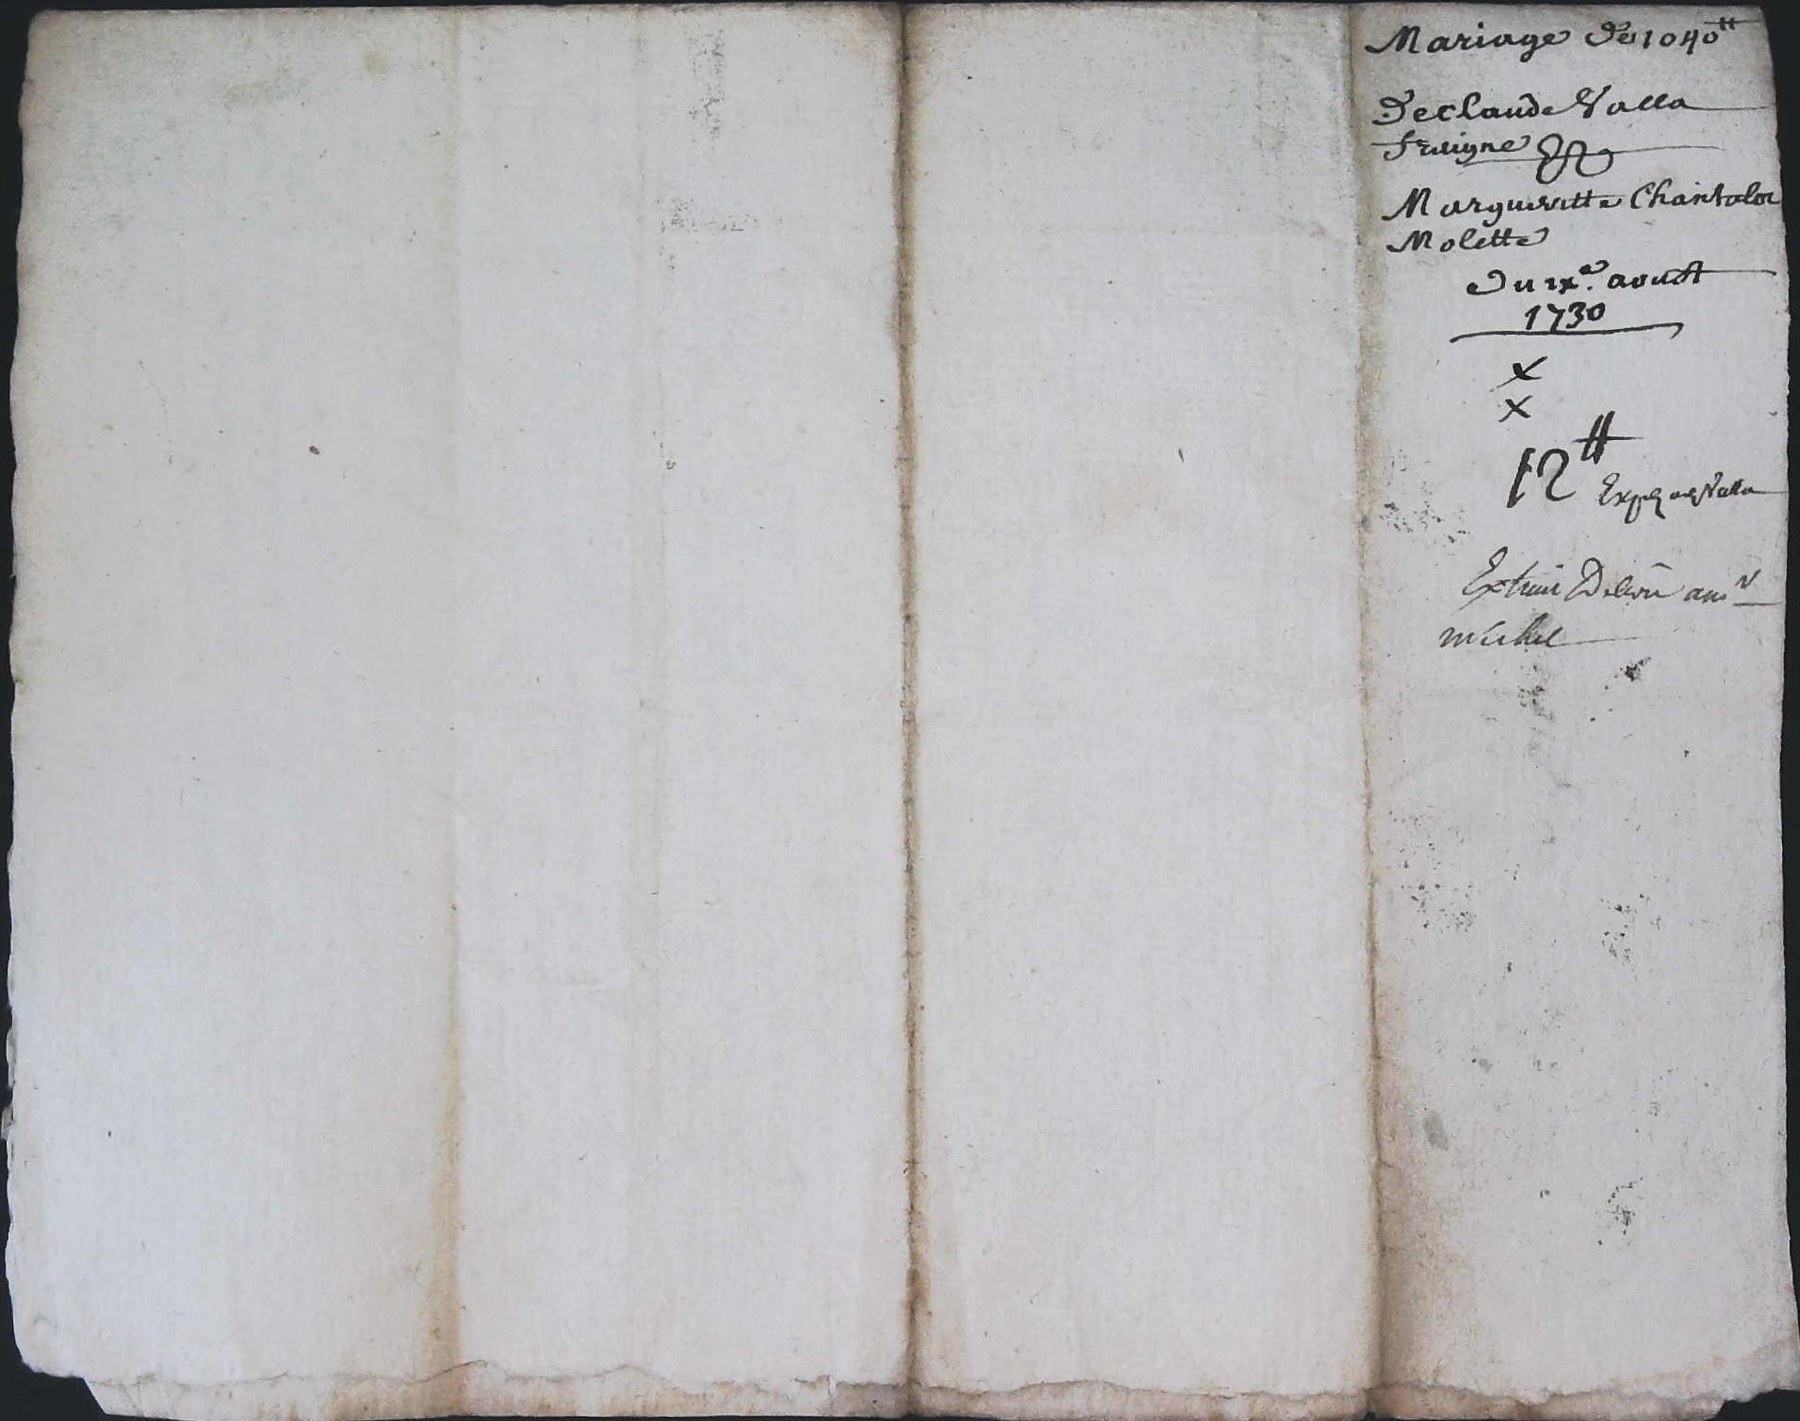 Mariage de 1040tt
De Claude Valla
Freigne Et
Margueritte Chantalou
Molette
Du ixe. aoust
1730
x
x
12tt
Exp. Valla
Extrait
michel